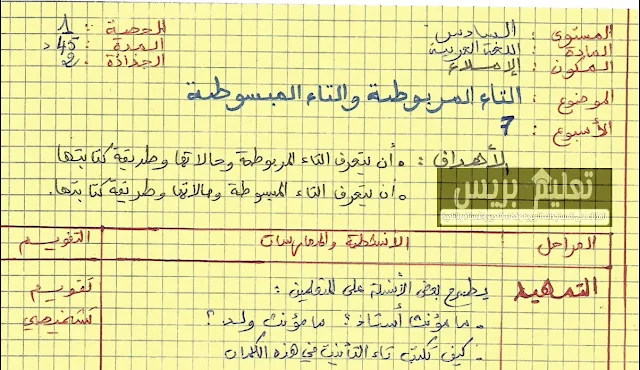 المستوى : السادس
المادة : اللغة العربية
المكون : الإملاء
الحصة : 1
المدة : 45 د
الجذاذة : 2
الموضوع : التاء المربوطة والتاء المبسوطة
الأسبوع : 7
الأهداف : • أن يتعرف التاء المربوطة وحالاتها وطريقة كتابتها
• أن يتعرف التاء المبسوطة وحالاتها وطريقة كتابتها.
تعليم بريس
المراحل
الأنشطة والممارسات
التقويم
التمهيد
يطرح بعض الأسئلة على المتعلمين :
- ما مؤنث أستاذ؟ ما مؤنث ولد؟
- كيف تكتب تاء التأنيث في هذه الكلمات
تقويم
تشخيصي